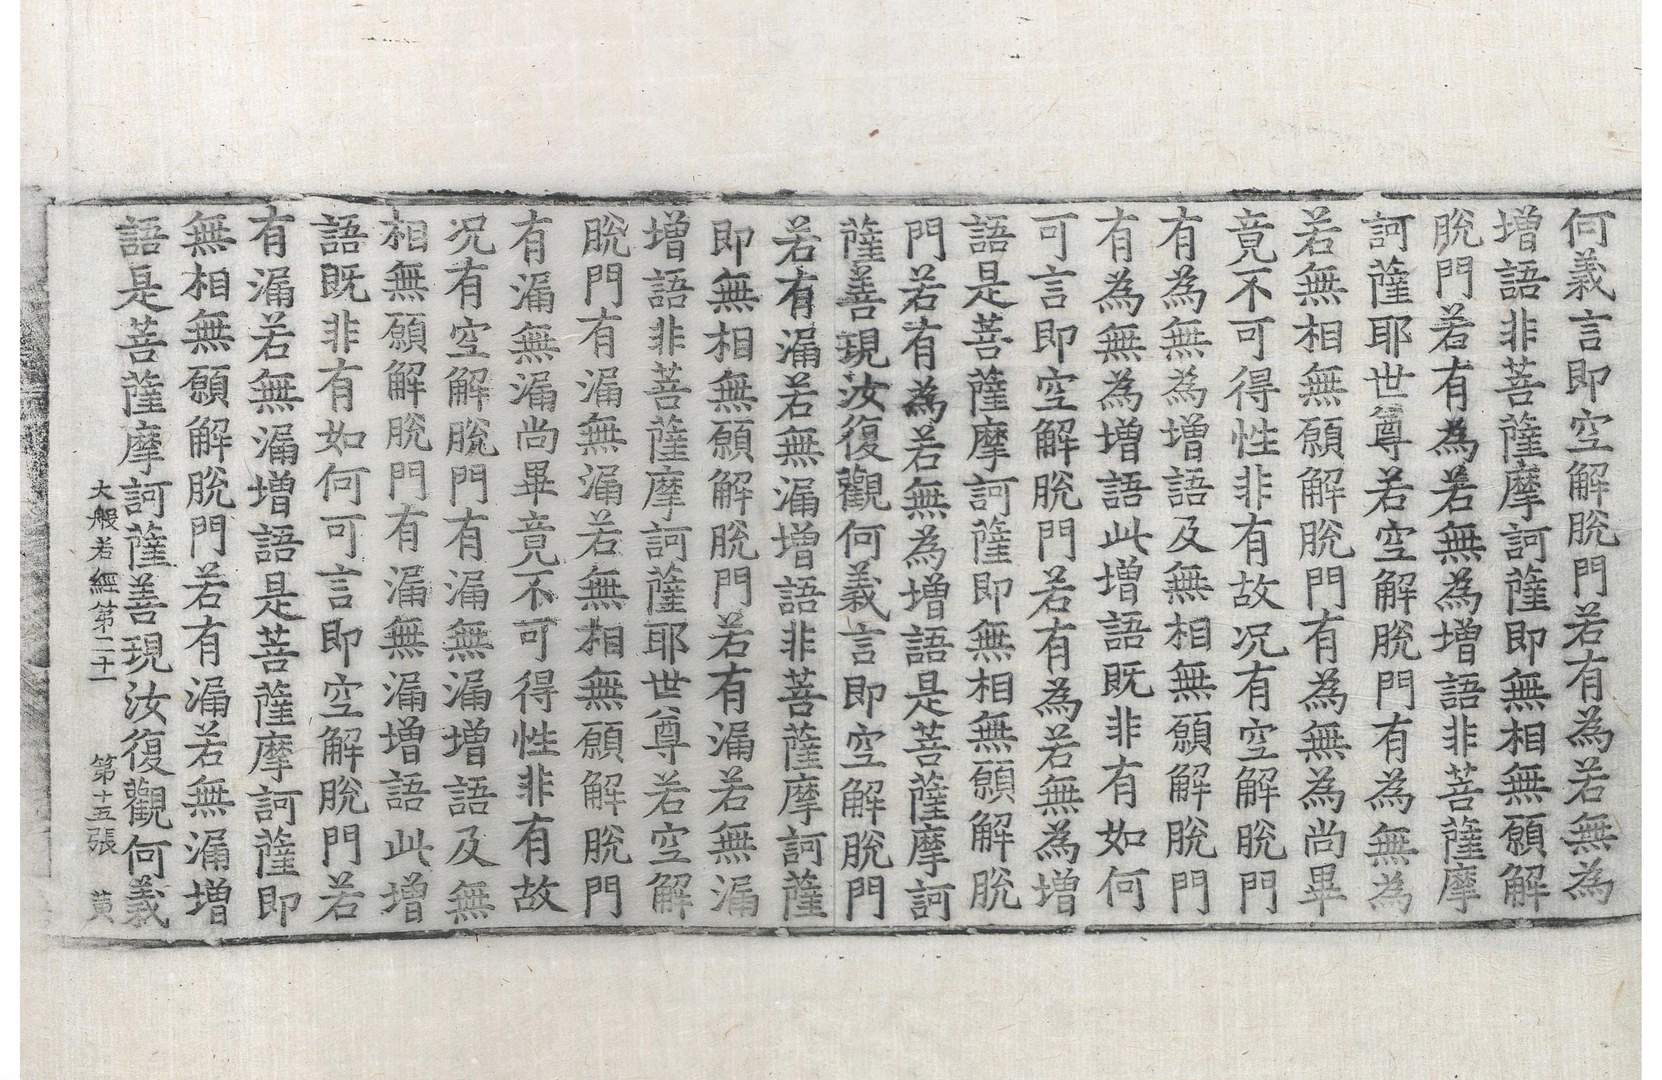 何義言即空解脫門若有為若無為
增語非菩薩摩訶薩即無相無願解
脫門若有為若無為增語非菩薩摩
訶薩耶世尊若空解脫門有為無為
若無相無願解脫門有為無為尚畢
竟不可得性非有故况有空解脫門
有為無為增語及無相無願解脫門
有為無為增語此增語既非有如何
可言即空解脫門若有為若無為增
語是菩薩摩訶薩即無相無願解脫
門若有為若無為增語是菩薩摩訶
薩善現汝復觀何義言即空解脫門
若有漏若無漏增語非菩薩摩訶薩
即無相無願解脫門若有漏若無漏
增語非菩薩摩訶薩耶世尊若空解
脫門有漏無漏若無相無願解脫門
有漏無漏尚畢竟不可得性非有故
况有空解脫門有漏無漏增語及無
相無願解脫門有漏無漏增語此增
語既非有如何可言即空解脫門若
有漏若無漏增語是菩薩摩訶薩即
無相無願解脫門若有漏若無漏增
語是菩薩摩訶薩善現汝復觀何義
大般若經第二十一 第十五張 黃